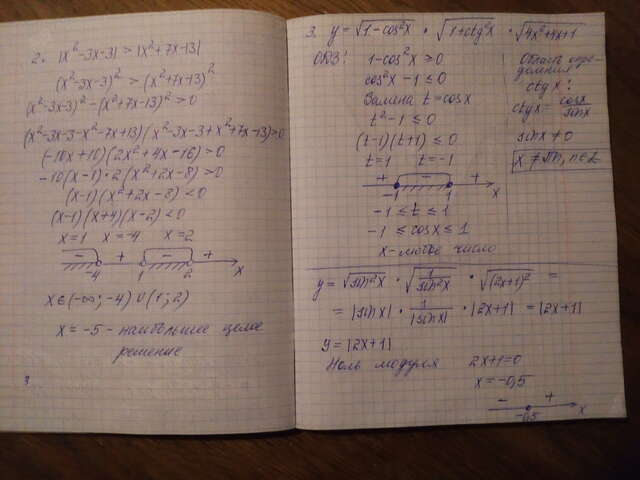 2. |x²-3x-3| > |x²+7x-13|
(x²-3x-3)² > (x²+7x-13)²
(x²-3x-3)² - (x²+7x-13)² > 0
(x²-3x-3-x²-7x+13)(x²-3x-3+x²+7x-13)>0
(-10x+10)(2x²+4x-16) > 0
-10(x-1)·2(x²+2x-8) > 0
(x-1)(x²+2x-8) < 0
(x-1)(x+4)(x-2) < 0
x=1 x=-4 x=2
- + - +
-4 1 2 x
x∈(-∞; -4) ∪ (1; 2)
x = -5 - наибольшее целое
решение
3.
3. y = √1-cos²x · √1+ctg²x · √4x²+4x+1
ОДЗ:
1-cos²x ≥ 0
cos²x - 1 ≤ 0
Замена t = cosx
t² - 1 ≤ 0
(t-1)(t+1) ≤ 0
t=1 t=-1
+ - +
-1 1 x
-1 ≤ t ≤ 1
-1 ≤ cosx ≤ 1
x - любое число
Область опре-
деления
ctgx:
ctgx = cosx/sinx
sinx ≠ 0
x ≠ πn, n∈Z
y = √sin²x · √1/sin²x · √(2x+1)² =
= |sinx| · 1/|sinx| · |2x+1| = |2x+1|
y = |2x+1|
Ноль модуля 2x+1=0
x = -0,5
- +
-0,5 x